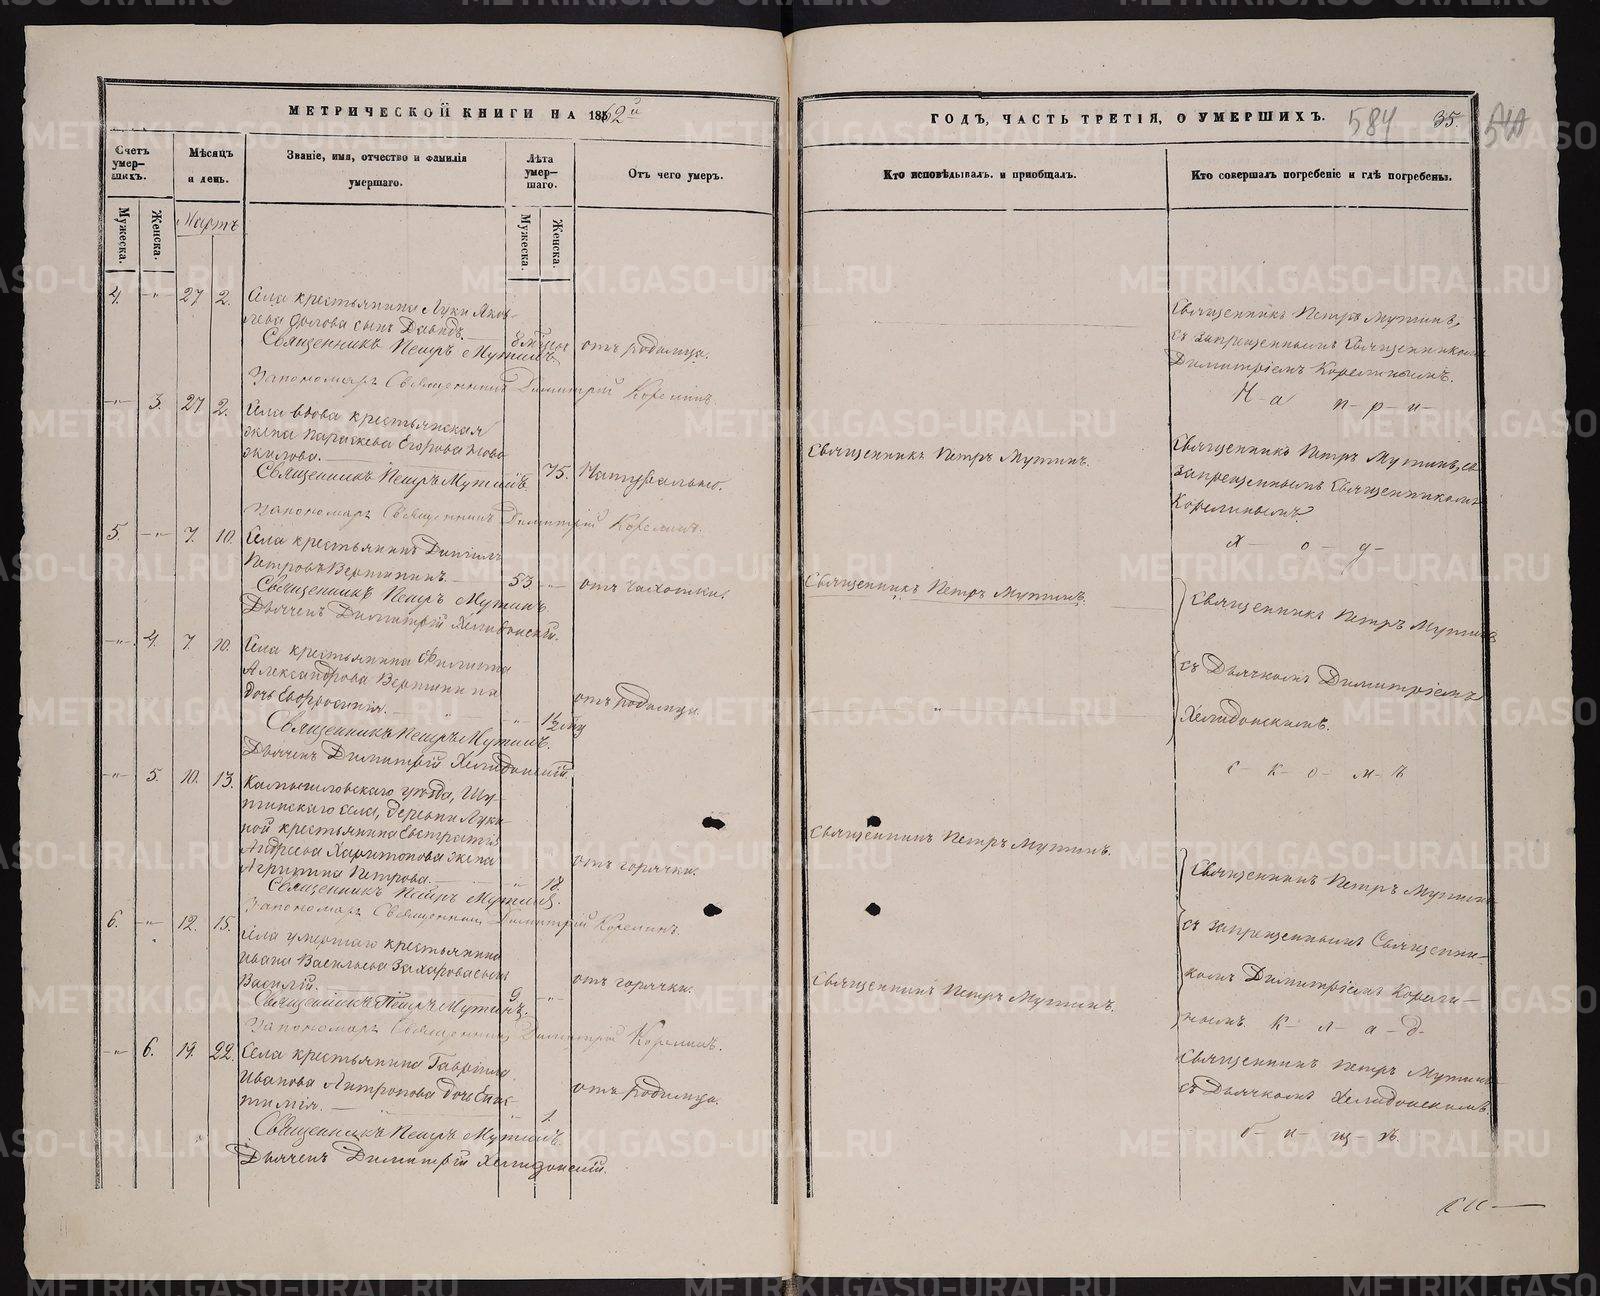 МЕТРИЧЕСКОЙ КНИГИ НА 1862й
ГОДЪ, ЧАСТЬ ТРЕТІЯ, О УМЕРШИХЪ.
584
35.
Счетъ умер-шихъ.
Мѣсяцъ и день.
Званіе, имя, отчество и фамилія умершаго.
Лѣта умер-шаго.
Отъ чего умеръ.
Кто исповѣдывалъ и пріобщалъ.
Кто совершалъ погребеніе и гдѣ погребены.
Мужеска.
Женска.
Мартъ
Мужеска.
Женска.
4. -"- 27 2. Села крестьянина Луки Яков-
лева сынъ Давидъ.
Священникъ Петръ Мутинъ.
отъ родимца.
Священникъ Петръ Мутинъ,
съ запрещеннымъ Священникомъ
Димитріемъ Корелинымъ.
Пономарь Священникъ Димитрій Корелинъ.
Н-а п-р-и-
-"- 3. 27 2. Села вдова крестьянская
жена Параскева Егорова Ново-
жилова.
Священникъ Петръ Мутинъ.
75. Натурально.
Священникъ Петръ Мутинъ.
Священникъ Петръ Мутинъ, съ
запрещеннымъ Священникомъ
Корелинымъ.
Пономарь Священникъ Димитрій Корелинъ.
х- о- д-
5. -"- 7. 10. Села крестьянинъ Даніилъ
Петровъ Вершининъ. 53. -"-
отъ чахотки.
Священникъ Петръ Мутинъ.
Дьячекъ Димитрій Хелидонскій.
Священникъ Петръ Мутинъ.
Священникъ Петръ Мутинъ
-"- 4. 7. 10. Села крестьянина Филиппа
Александрова Вершинина
дочь Евфросинія.
отъ родимца.
Священникъ Петръ Мутинъ.
Дьячекъ Димитрій Хелидонскій.
съ Дьячкомъ Димитріемъ
Хелидонскимъ.
с- к- о- м-ъ
-"- 5. 10. 13. Камышловскаго уѣзда, Шу-
тинскаго села, деревни Луки-
ной крестьянина Евстратія
Андреева Харитонова жена
Агрипина Петрова. -"- 18.
отъ горячки.
Священникъ Петръ Мутинъ.
Пономарь Священникъ Димитрій Корелинъ.
Священникъ Петръ Мутинъ.
Священникъ Петръ Мутинъ
6. -"- 12. 15. Села умершаго крестьянина
Ивана Васильева Захарова сынъ
Василій. 9. -"-
отъ горячки.
Священникъ Петръ Мутинъ.
Пономарь Священникъ Димитрій Корелинъ.
Священникъ Петръ Мутинъ.
съ запрещеннымъ Священни-
комъ Димитріемъ Корели-
нымъ. к- л- а- д-
-"- 6. 19. 22. Села крестьянина Гавріила
Иванова Антропова дочь
1.
отъ родимца.
Священникъ Петръ Мутинъ.
Дьячекъ Димитрій Хелидонскій.
Священникъ Петръ Мутинъ
съ Дьячкомъ Хелидонскимъ.
б- и- щ- ѣ.
METRIKI.GASO-URAL.RU